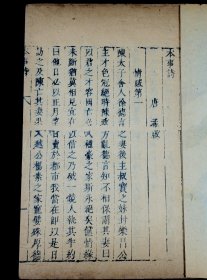 本事詩
唐 孟啟
情感第一
陳太子舍人徐德言之妻後主叔寶之妹封樂昌公
主才色冠絕時陳政方亂德言知不相保謂其妻曰
以君之才容國亡必入權豪之家斯永絕矣儻情緣
未斷猶冀相見宜有以信之乃破一鏡人執其半約
曰他日必以正月望日賣於都市我當在即以是日
訪之及陳亡其妻果入越公楊素之家寵嬖殊厚德